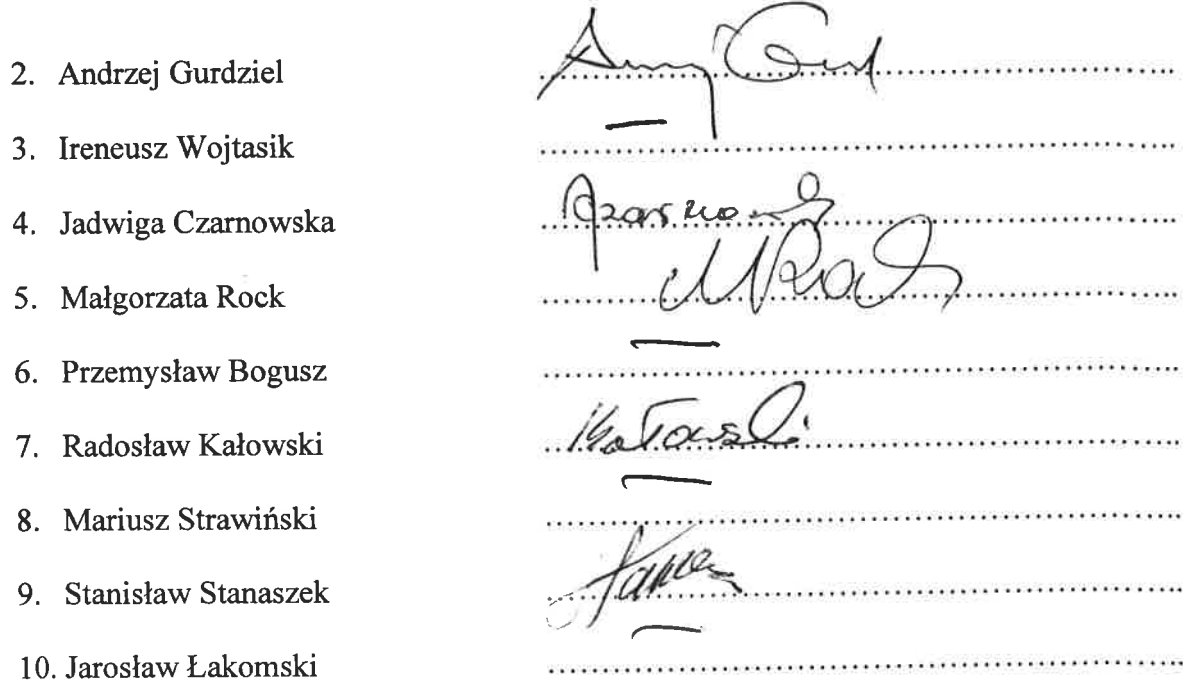 2. Andrzej Gurdziel
3. Ireneusz Wojtasik
4. Jadwiga Czarnowska
5. Małgorzata Rock
6. Przemysław Bogusz
7. Radosław Kałowski
8. Mariusz Strawiński
9. Stanisław Stanaszek
10. Jarosław Łakomski